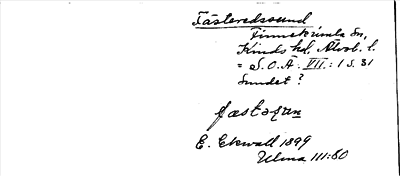 Fästeredssund
Finnekumla sn,
Kinds hd. Älvsb. l.
= S.O.Ä. VII: 1 s. 31
Sundet?
fæstəʒən
E. Ekwall 1899
Ulma 111:60